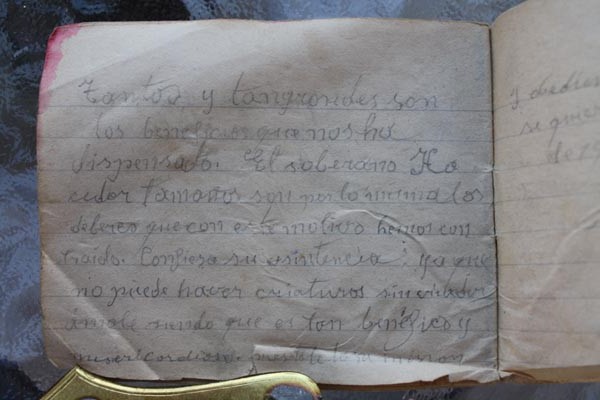 Tantos y tan grandes son
los beneficios que nos ha
dispensado. El soberano Ha
cedor tamaños son por lo mismo los
deberes que con este motivo hemos con
traido. Confieso su esistencia. ya que
no puede haver criaturas sin criador
ámole siendo que es tan benéfico y
misericordioso.
y
si quier
de 19